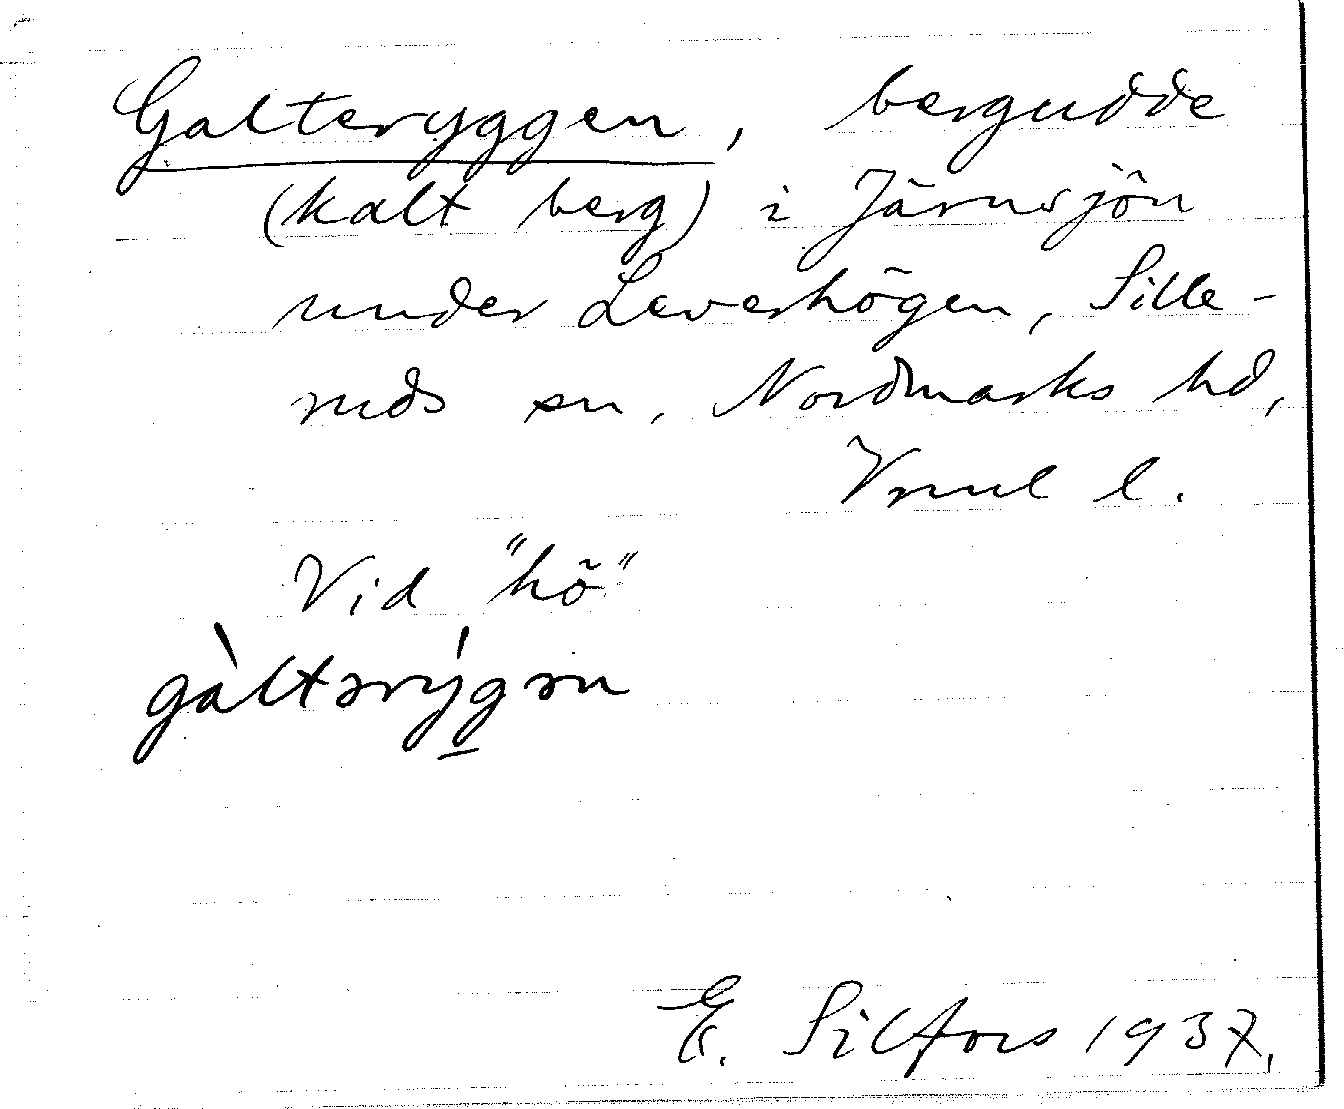 Galteryggen, bergudde
(kalt berg) i Järnsjön
under Leverhögen, Sille-
ruds sn, Nordmarks hd,
Vrml l.
Vid "hö"
gàltərýgən
E. Silfors 1937.